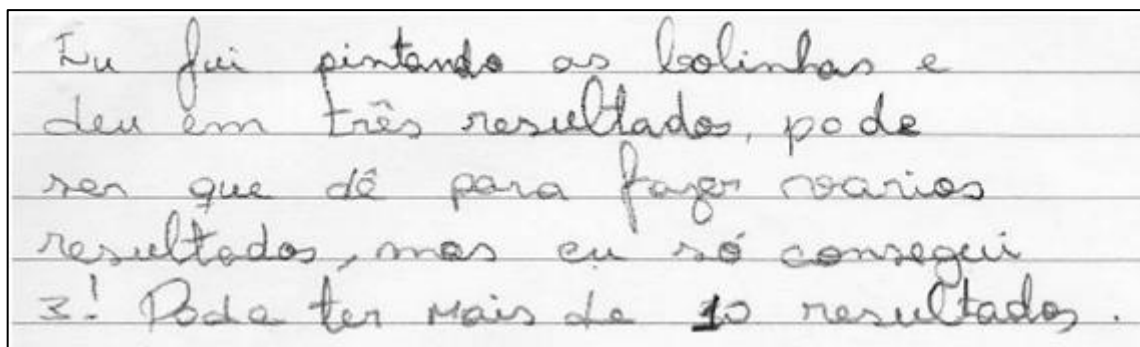 Eu fui pintando as bolinhas e
deu em três resultados, pode
ser que dê para fazer varios
resultados, mas eu só consegui
3! Pode ter mais de 10 resultados.